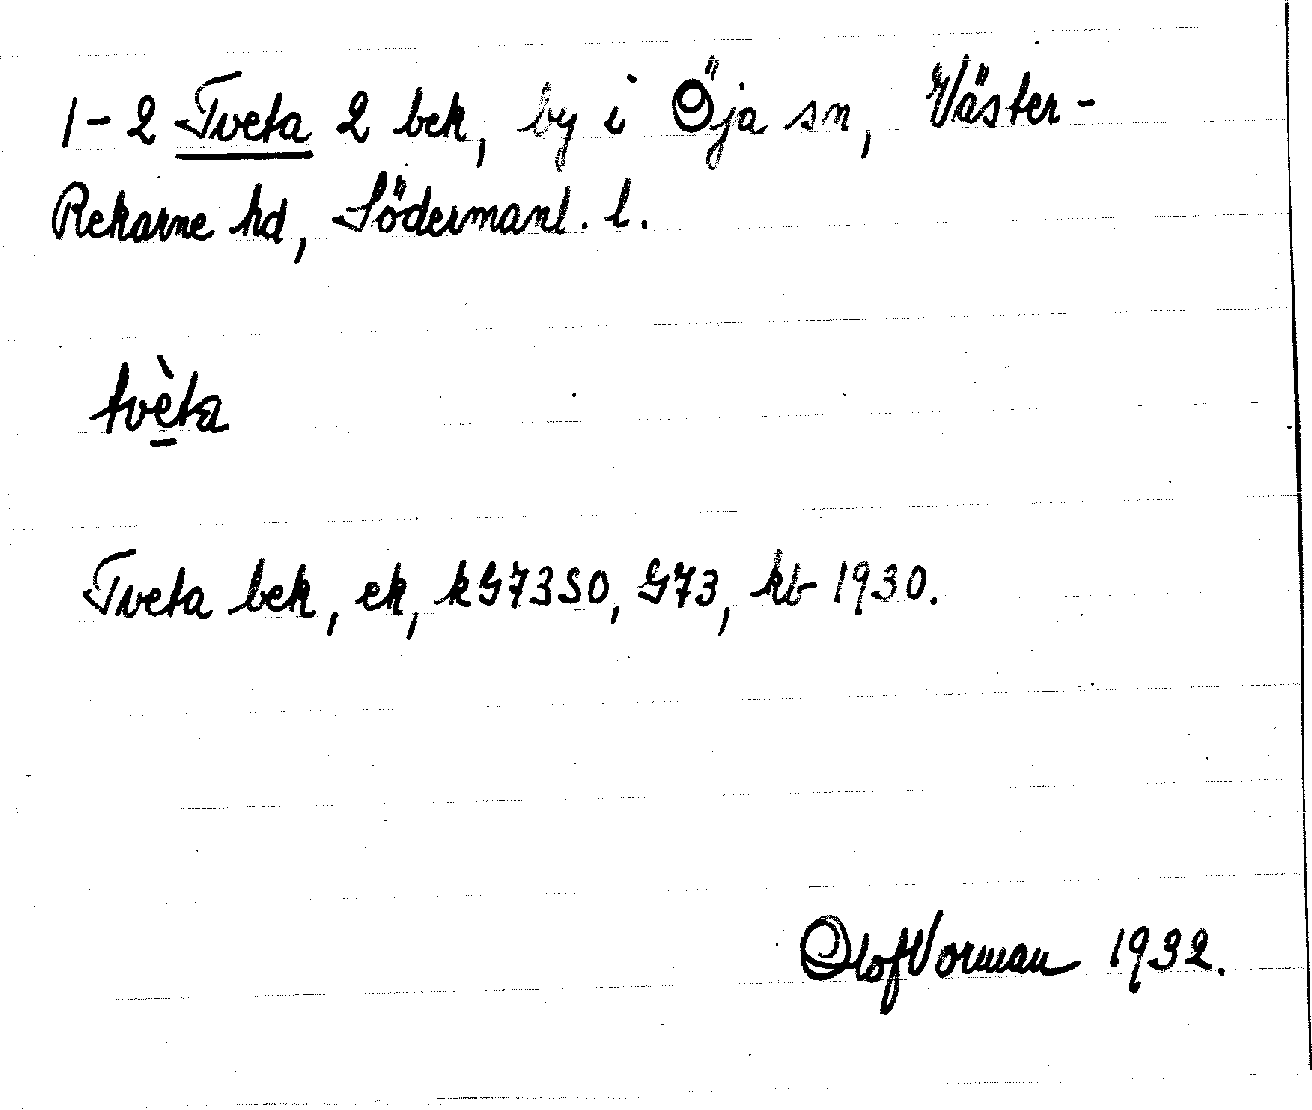 1-2 Tveta 2 bek, by i Öja sn, Väster-
Rekarne hd, Södermanl. l.
tvèta
Tveta bek, ek, kG73SO, G73, kb 1930.
Olof Vorman 1932.